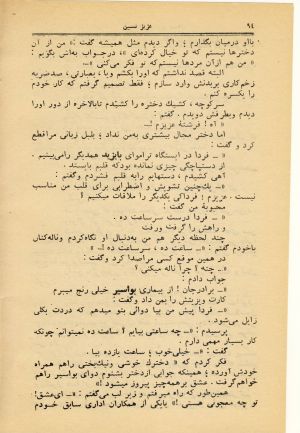 ۹۴
عزیز نسین
بااو درمیان بگذارم ؛ واگر دیدم مثل همیشه گفت : «ـ من از آن
دخترها نیستم که تو خیال کرده‌ای »، درجواب به‌اش بگویم :
«ـ من هم ازآن مردها نیستم که تو فکر می‌کنی »..
البته قصد نداشتم که اورا بکشم ویا، بعبارتی، صدضربه
زخم کاری بربدنش وارد سازم ؛ فقط تصمیم گرفتم که کار خودم
را یکسره کنم .
سر کوچه ، کشیك دختره را کشیدم تا بالاخره از دور اورا
دیدم وبطرفش دویدم . گفتم :
« ـ آه ! فرشتهٔ عزیزم !»
اما دختر مجال بیشتری به‌من نداد ؛ بلبل زبانی مراقطع
کرد و گفت :
« ـ فردا در ایستگاه تراموای بایزید همدیگر رامی‌بینیم .
از دستپاچگی چیزی نمانده بودکه قلبم بایستد .
آهی کشیدم ، دستهایم رابه قلبم فشردم وگفتم :
« ـ یك‌چنین تشویش و اضطرابی برای قلب من مناسب
نیست . عزیزم ! فرداکی یکدیگر را ملاقات میکنیم ؟
محبوبهٔ من گفت :
« ـ فردا درست سرساعت ده .
و راهش را گرفت ورفت
چند لحظه دیگر هم من به‌دنبال او نگاه‌کردم وناله‌کنان
باخودم گفتم : «ـ ساعت ده ، سرساعت ده !..»
در همین موقع کسی مراصدا کرد وگفت :
«ـ چته ؟ چرا ناله میکنی ؟
جواب دادم :
« ـ برادرجان ! از بیماری بواسیر خیلی رنج میبرم
کارت ویزیتش را بمن داد وگفت :
« ـ فردا پیش من بیا دوائی بتو میدهم که دردت بکلی
زایل می‌شود .
پرسیدم : «ـ چه ساعتی بیایم ؟ ساعت ده نمیتوانم چونکه
کار بسیار مهمی دارم .
گفت : «ـ خیلی‌خوب ؛ ساعت یازده بیا .
فکر کردم که « دخترك خوشی وتیك‌بختی راهم همراه
خودش آورده ؛ همینکه جوابی ازدختر بشنوم دوای بواسیر راهم
خواهم‌گرفت . عشق برهمه‌چیز پیروز میشود !»
همین‌طور که راه میرفتم و زیر لب می‌گفتم : «ـ ای‌عشق !
تو چه معجونی هستی !» بایکی از همکاران اداری سابق خودم